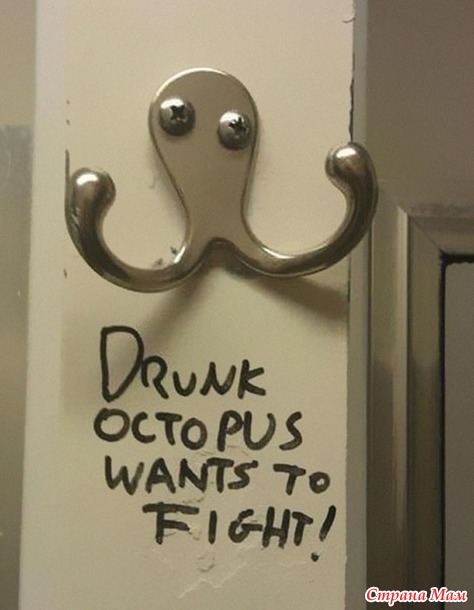 DRUNK
OCTOPUS
WANTS TO
FIGHT!
Страна Мам